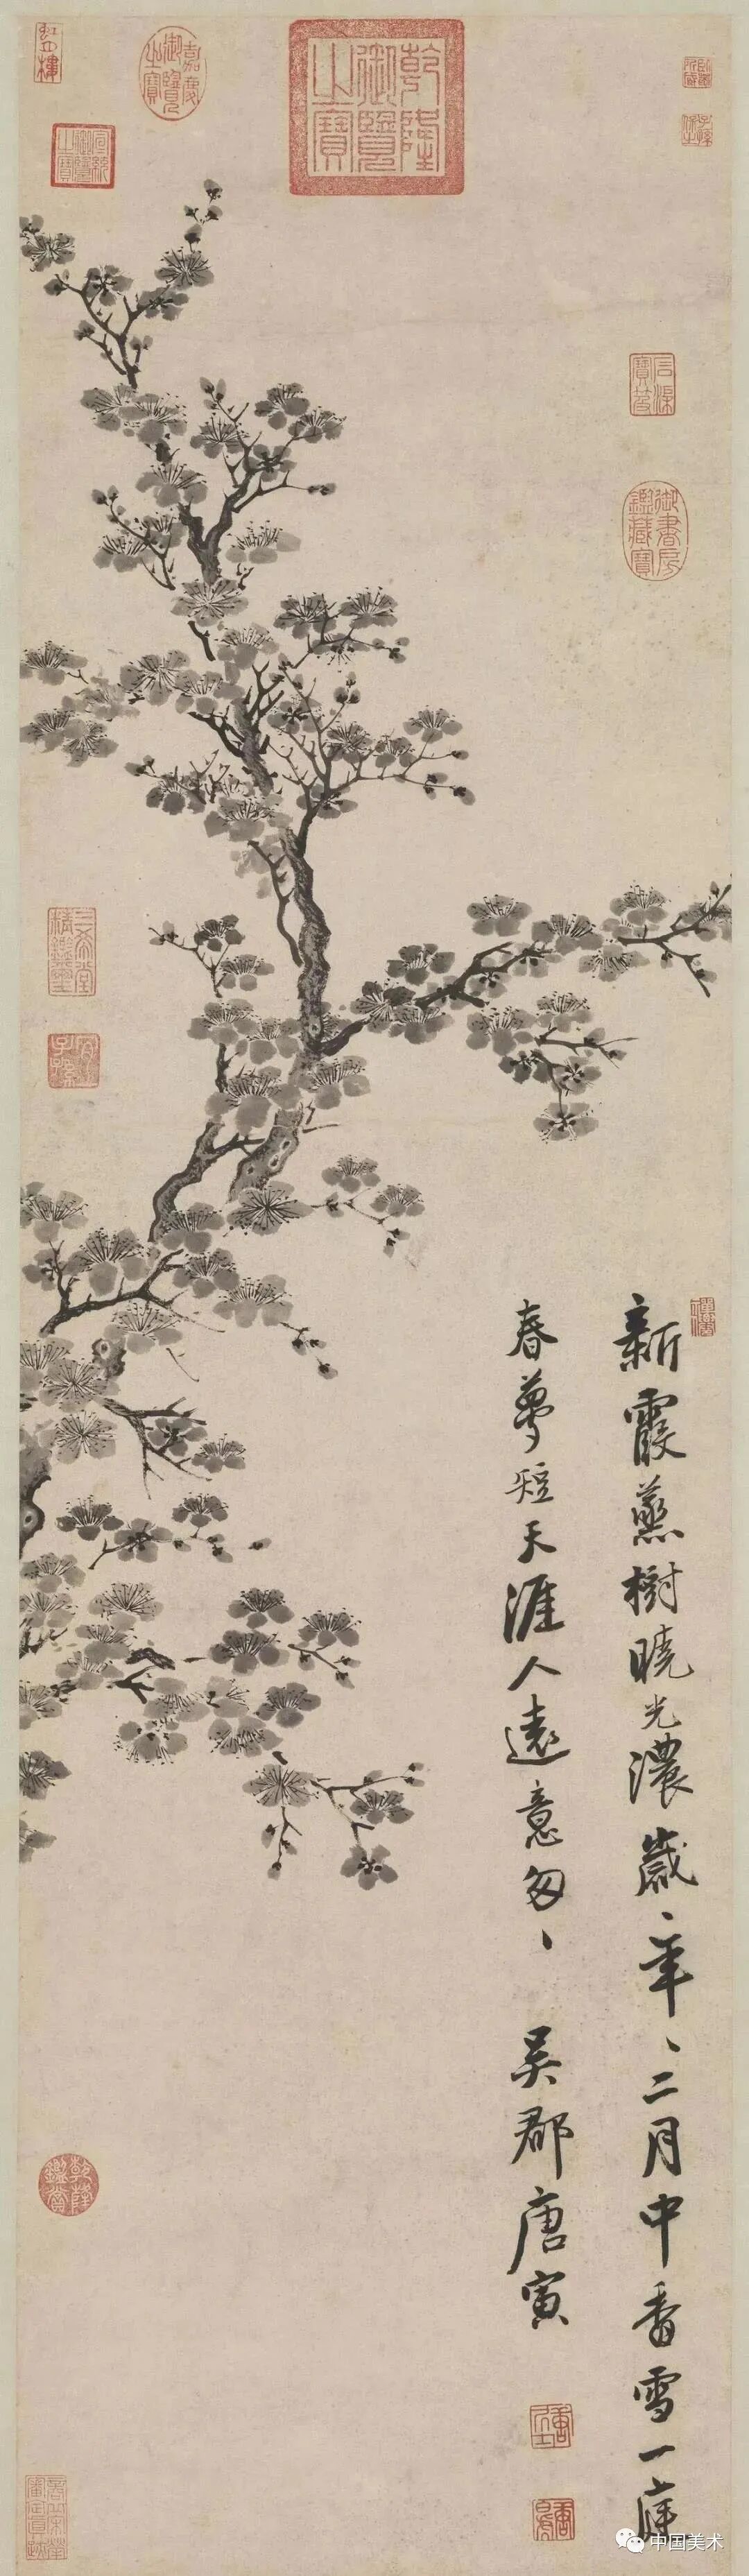 乾隆御覽之寶
嘉慶御覽之寶
宣統御覽之寶
石渠寶笈
御書房鑑藏寶
三希堂精鑑璽
宜子孫
新霞蒸樹曉光濃歲、年、二月中香雪一庭
春夢短天涯人遠意匆、
吳郡唐寅
乾隆鑑賞
中国美术